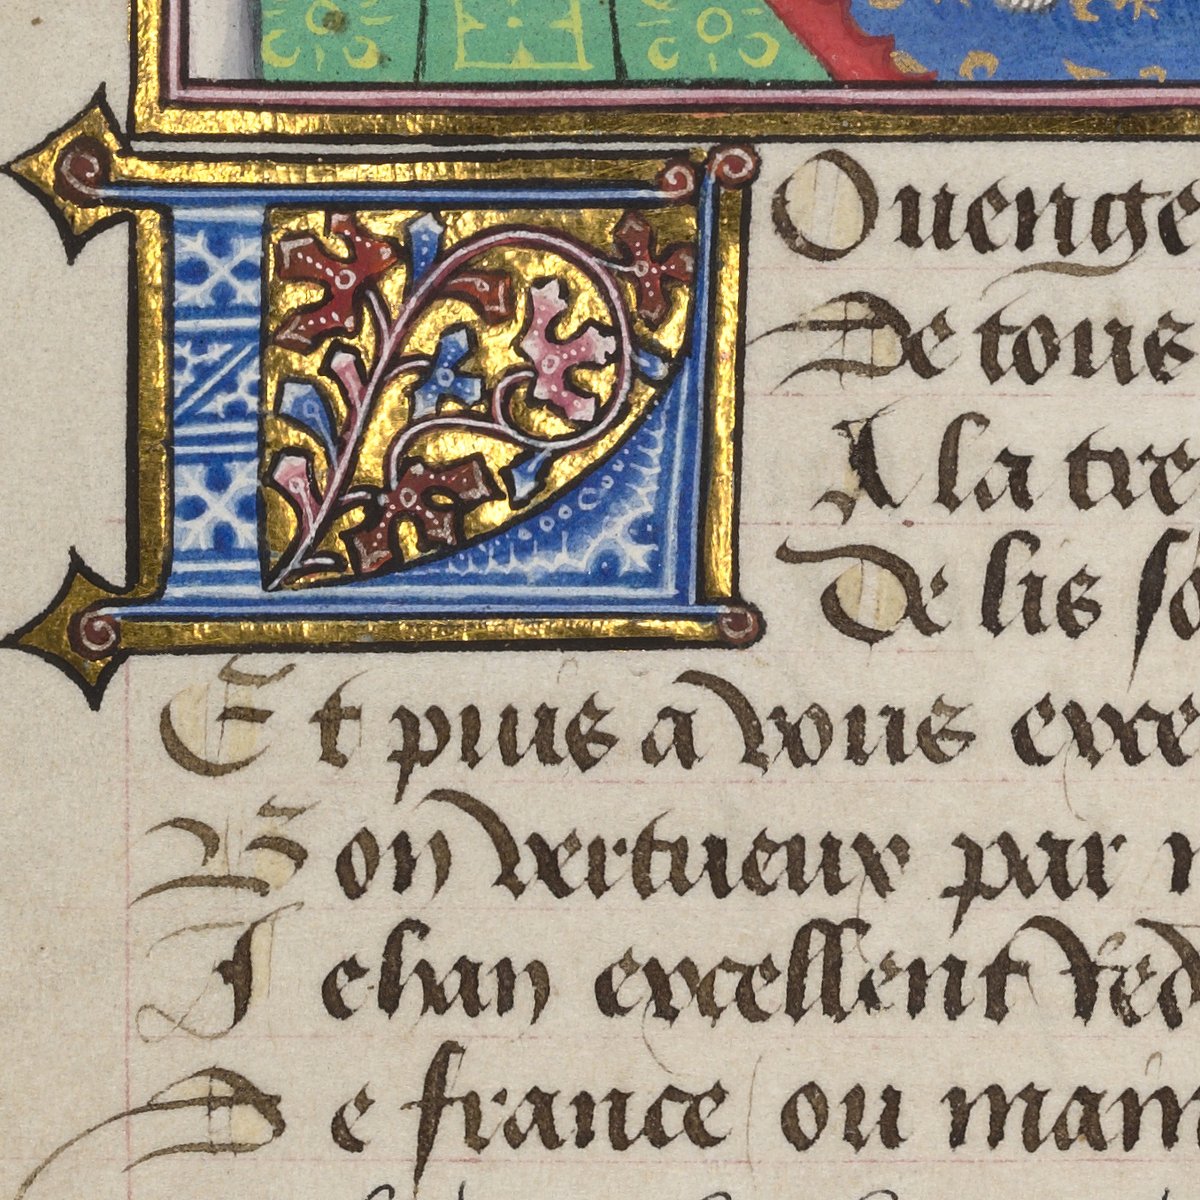 LOuenge
De tous
A la tre
De lis so
Et puis a vous exce
Bon vertueux par
Jehan excellent Red
De france ou main